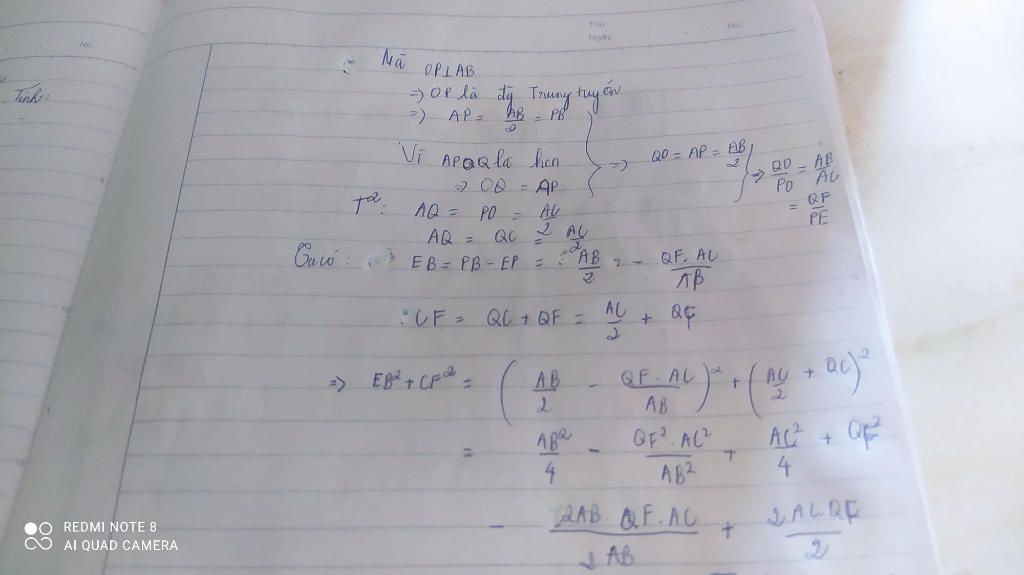 No.
THỨ
NGÀY
No.
Tính:
Mà OP⊥AB
⇒ OP là đg Trung tuyến
⇒ AP = AB/2 = PB
Vì APOQ là hcn ⇒ QO = AP = AB/2 ⇒ QO/PO = AB/AC
⇒ OQ = AP
= QF/PE
T²: AQ = PO = AC/2
AQ = QC = AC/2
Ta có: EB = PB - EP = AB/2 = - QF.AC/AB
CF = QC + QF = AC/2 + QF
⇒ EB² + CF² = (AB/2 - QF.AC/AB)² + (AC/2 + QC)²
= AB²/4 - QF².AC²/AB² + AC²/4 + QF²
- 2AB.QF.AC/2AB + 2AC.QF/2
REDMI NOTE 8
AI QUAD CAMERA